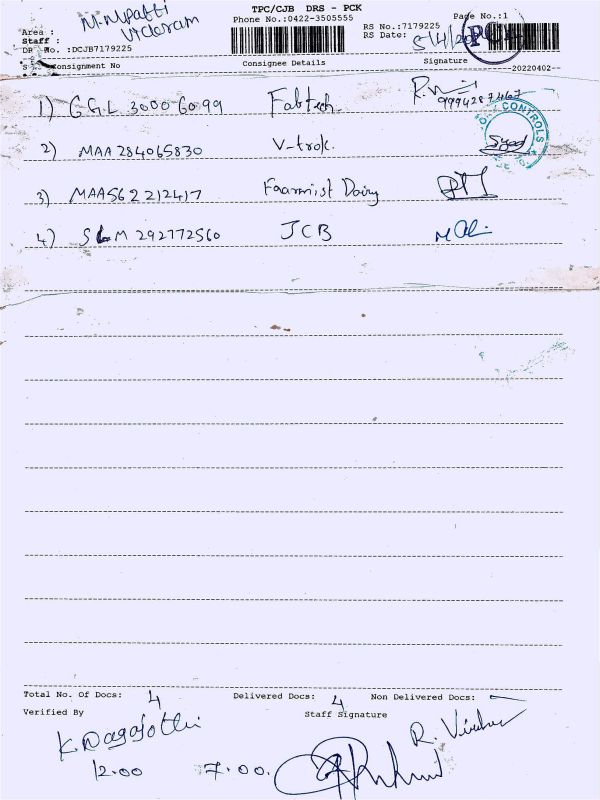 TPC/CJB DRS - PCK
Phone No.:0422-3505555
Page No.:1
M.M.Patti
Area :
Staff :
DR No. :DCJB7179225
RS No.:7179225
RS Date: 5/4/202
PCK
Consignment No Consignee Details Signature
--20220402--
1) GGL 30006099 Fabtech.
9994287467
CONTROLS
2) MAA 284065830 V-trok. Syed
3) MAA562212417 Faarmist Dairy
4) SLM 292772560 JCB
Total No. Of Docs: 4 Delivered Docs: 4 Non Delivered Docs: -
Verified By Staff Signature
12.00 7.00.